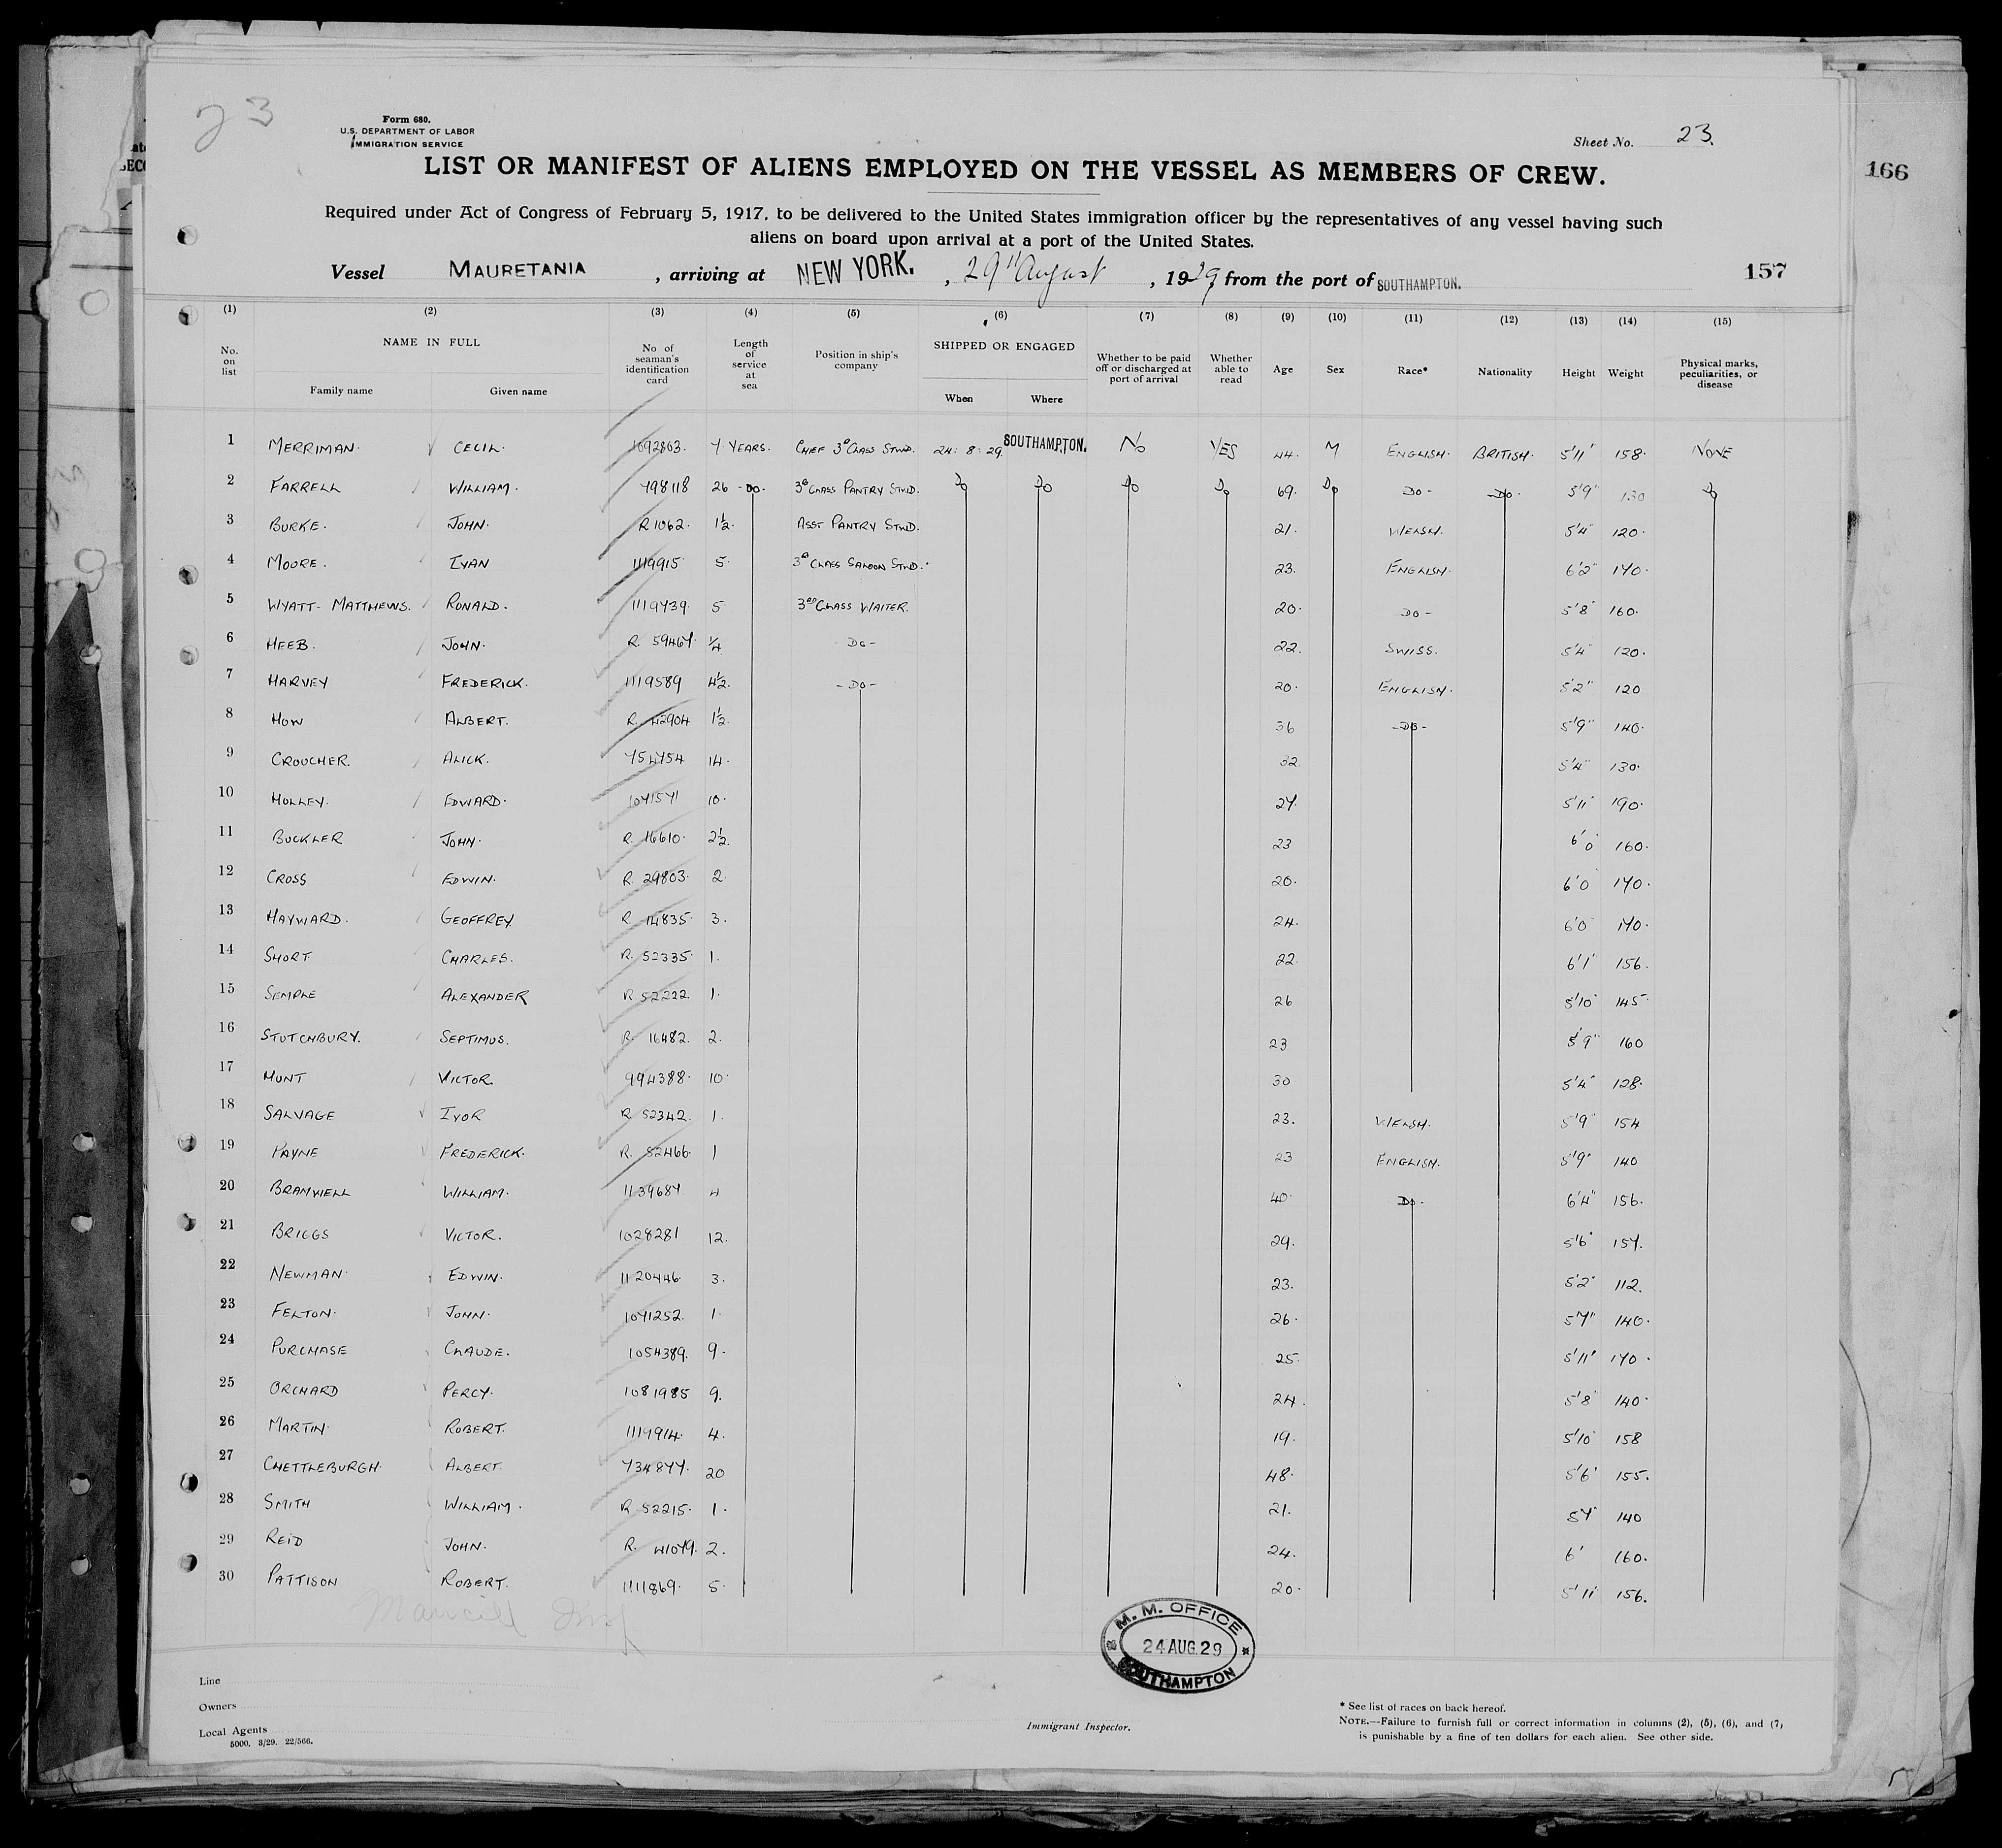 23
Form 680.
U.S. DEPARTMENT OF LABOR
IMMIGRATION SERVICE
Sheet No. 23.
LIST OR MANIFEST OF ALIENS EMPLOYED ON THE VESSEL AS MEMBERS OF CREW.
166
Required under Act of Congress of February 5, 1917, to be delivered to the United States immigration officer by the representatives of any vessel having such
aliens on board upon arrival at a port of the United States.
Vessel MAURETANIA, arriving at NEW YORK., 29th August, 1929, from the port of SOUTHAMPTON.
157
(1) (2) (3) (4) (5) (6) (7) (8) (9) (10) (11) (12) (13) (14) (15)
No. on list NAME IN FULL Family name Given name No of seaman's identification card Length of service at sea Position in ship's company SHIPPED OR ENGAGED When Where Whether to be paid off or discharged at port of arrival Whether able to read Age Sex Race* Nationality Height Weight Physical marks, peculiarities, or disease
1 MERRIMAN. CECIL. 1092803. 7 YEARS. CHIEF 3D CLASS STWD. 24:8:29 SOUTHAMPTON. NO YES 44. M ENGLISH. BRITISH. 5'11" 158. NONE
2 FARRELL WILLIAM. 798118 26 -DO- 3D CLASS PANTRY STWD. DO DO DO DO 69. DO DO- -DO- 5'9" 130 DO
3 BURKE. JOHN. R 1062. 1½. ASST PANTRY STWD. 21. WELSH. 5'4" 120.
4 MOORE. IVAN 1119915 5. 3D CLASS SALOON STWD. 23. ENGLISH. 6'2" 170.
5 WYATT-MATTHEWS. RONALD. 1119739. 5 3RD CLASS WAITER. 20. DO- 5'8" 160.
6 HEEB. JOHN. R. 59467 ¼ -DO- 22. SWISS. 5'4" 120.
7 HARVEY FREDERICK. 1119589 4½. -DO- 20. ENGLISH. 5'2" 120
8 HOW ALBERT. R. 42904 1½. 36 -DO- 5'9" 140.
9 CROUCHER. ALICK. 754754 14. 32. 5'4" 130.
10 HOLLEY. EDWARD. 1071571 10. 27. 5'11" 190.
11 BUCKLER JOHN. R. 16610. 2½. 23 6'0 160.
12 CROSS EDWIN. R. 29803. 2. 20. 6'0 170.
13 HAYWARD. GEOFFREY R. 14835. 3. 24. 6'0 170.
14 SHORT CHARLES. R. 52335. 1. 22. 6'1" 156.
15 SEMPLE ALEXANDER R 52222. 1. 26 5'10" 145.
16 STUTCHBURY. SEPTIMUS. R. 16482. 2. 23 5'9" 160
17 HUNT VICTOR. 994388. 10. 30 5'4" 128.
18 SALVAGE IVOR R 52342. 1. 23. WELSH. 5'9" 154
19 PAYNE FREDERICK. R. 52466. 1 23 ENGLISH. 5'9" 140
20 BRAMWELL WILLIAM. 1139687 4 40. DO. 6'4" 156.
21 BRIGGS VICTOR. 1028281 12. 29. 5'6" 157.
22 NEWMAN. EDWIN. 1120446 3. 23. 5'2" 112.
23 FELTON. JOHN. 1071252. 1. 26. 5'7" 140.
24 PURCHASE CLAUDE. 1054389. 9. 25. 5'11" 170.
25 ORCHARD PERCY. 1081985 9. 24. 5'8" 140.
26 MARTIN. ROBERT. 1119914. 4. 19. 5'10" 158
27 CHETTLEBURGH. ALBERT. 734877. 20 48. 5'6" 155.
28 SMITH WILLIAM. R 52215. 1. 21. 5'7" 140
29 REID JOHN. R. 41079. 2. 24. 6' 160.
30 PATTISON ROBERT. 1111869. 5. 20. 5'11" 156.
M. M. OFFICE
24 AUG. 29
SOUTHAMPTON
Line
Owners
Local Agents
5000. 3/29. 22/566.
Immigrant Inspector.
* See list of races on back hereof.
NOTE.—Failure to furnish full or correct information in columns (2), (5), (6), and (7)
is punishable by a fine of ten dollars for each alien. See other side.